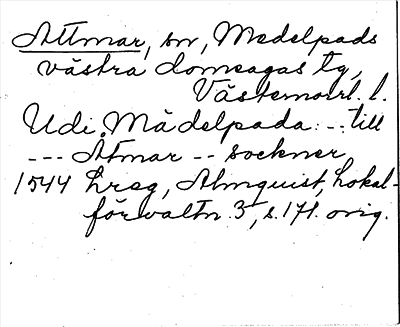 Attmar, sn, Medelpads
västra domsagas tg,
Västernorrl. l.
Udi Mådelpada: -- till
--- Åtmar -- sockner
1544 hreg, Almquist, Lokal-
förvaltn. 3, s. 171. orig.